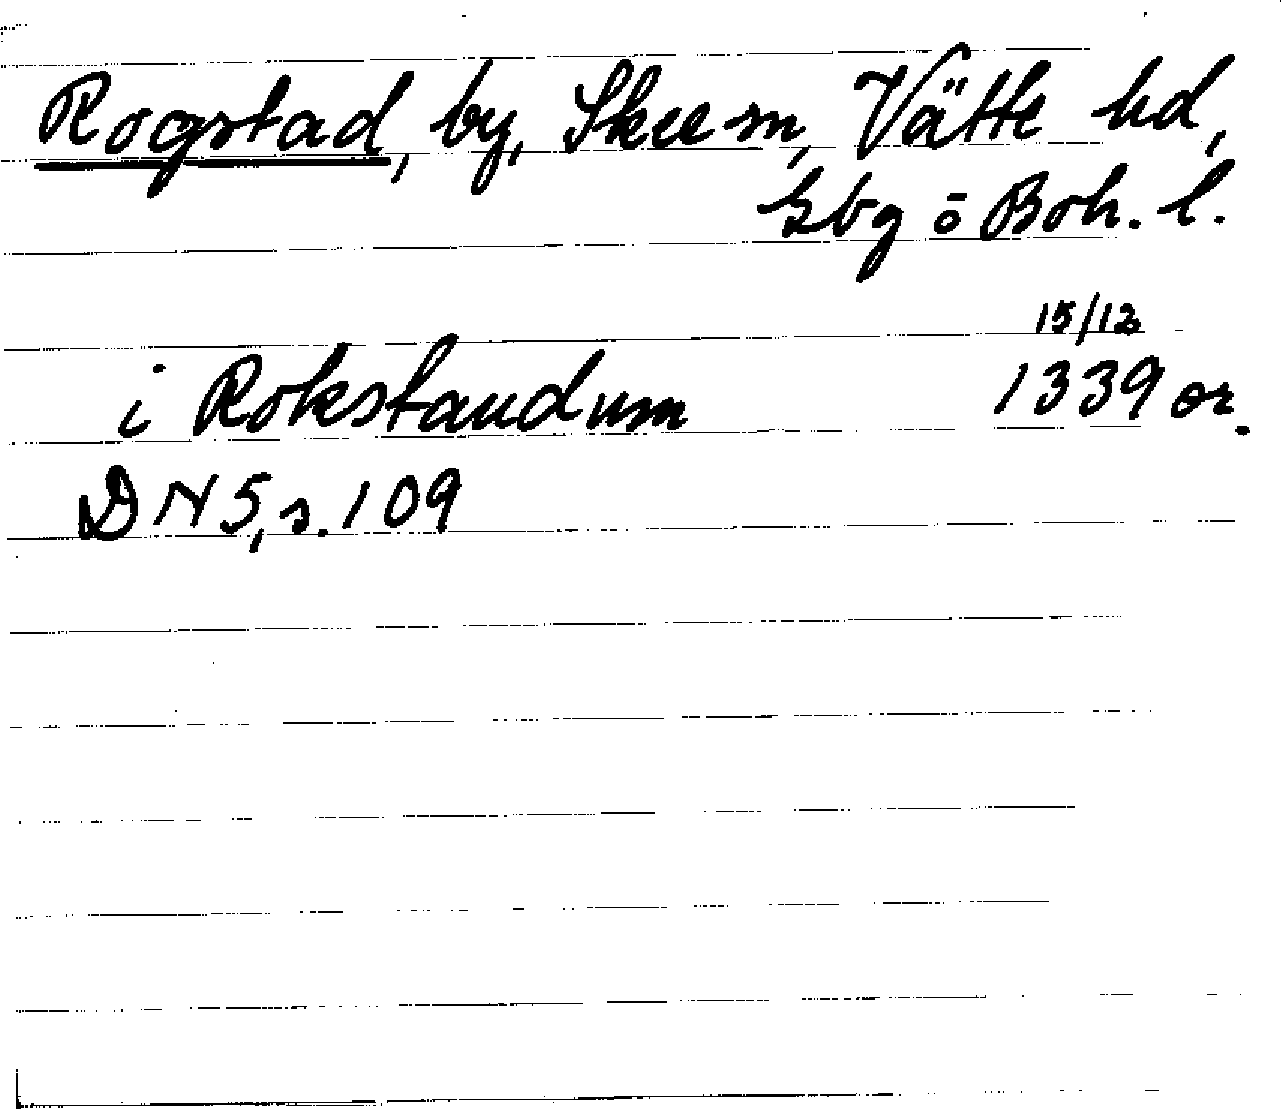 Rogstad, by, Skee sn, Vätte hd,
Gbg ō Boh. l.
15/12
i Rokstaudum 1339 or.
DN 5, s. 109